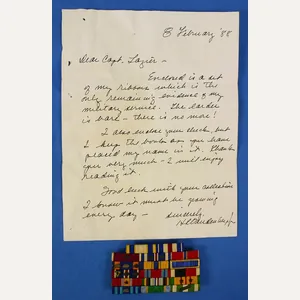 8 February '88
Dear Capt. Lazier -
Enclosed is a set
of my ribbons which is the
only remaining evidence of my
military service. The larder
is bare - there is no more!
I also enclose your check, but
I keep the book as you have
placed my name in it. Thank
you very much - I will enjoy
reading it.
Good luck with your collection
I know it must be growing
every day -
Sincerely,